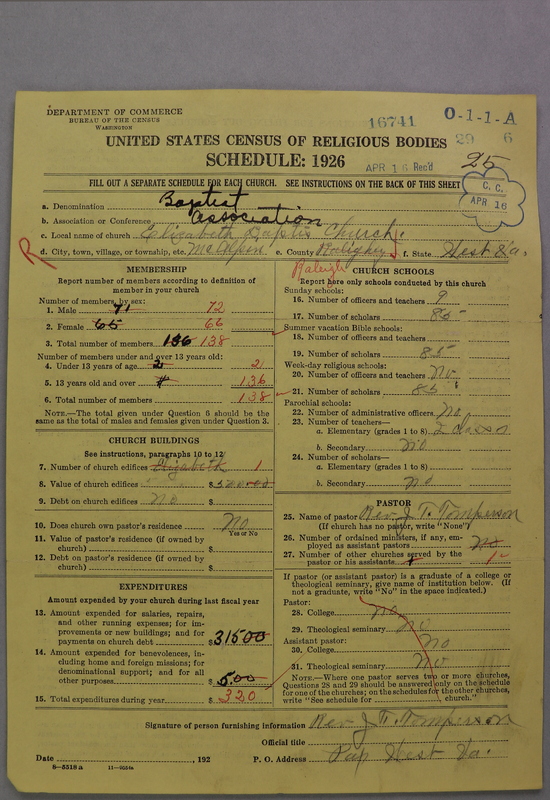 DEPARTMENT OF COMMERCE
BUREAU OF THE CENSUS
WASHINGTON
16741
O-1-1-A
29 6
UNITED STATES CENSUS OF RELIGIOUS BODIES
SCHEDULE: 1926
APR 16 Rec'd
25
FILL OUT A SEPARATE SCHEDULE FOR EACH CHURCH. SEE INSTRUCTIONS ON THE BACK OF THIS SHEET
C. C.
APR 16
a. Denomination Baptist
b. Association or Conference Association
c. Local name of church Elizabeth Baptis Church
R
d. City, town, village, or township, etc. McAlpin e. County Raleigh f. State West Va.
Raleigh
MEMBERSHIP
Report number of members according to definition of member in your church
Number of members by sex:
1. Male 71 72
2. Female 65 66
3. Total number of members 136 138
Number of members under and over 13 years old:
4. Under 13 years of age 2 2
5. 13 years old and over 136
6. Total number of members 138
NOTE.—The total given under Question 6 should be the same as the total of males and females given under Question 3.
CHURCH BUILDINGS
See instructions, paragraphs 10 to 12
7. Number of church edifices Elizabeth 1
8. Value of church edifices $
9. Debt on church edifices No $
10. Does church own pastor's residence No
Yes or No
11. Value of pastor's residence (if owned by church) $
12. Debt on pastor's residence (if owned by church) $
EXPENDITURES
Amount expended by your church during last fiscal year
13. Amount expended for salaries, repairs, and other running expenses; for improvements or new buildings; and for payments on church debt $ 315 00
14. Amount expended for benevolences, including home and foreign missions; for denominational support; and for all other purposes $ 5.00
15. Total expenditures during year $ 320
CHURCH SCHOOLS
Report here only schools conducted by this church
Sunday schools:
16. Number of officers and teachers 9
17. Number of scholars 85
Summer vacation Bible schools:
18. Number of officers and teachers
19. Number of scholars 85
Week-day religious schools:
20. Number of officers and teachers No
21. Number of scholars 85
Parochial schools:
22. Number of administrative officers No
23. Number of teachers—
a. Elementary (grades 1 to 8)
b. Secondary No
24. Number of scholars—
a. Elementary (grades 1 to 8)
b. Secondary No
PASTOR
25. Name of pastor Rev. J. T. Tomperson
(If church has no pastor, write "None")
26. Number of ordained ministers, if any, employed as assistant pastors No
27. Number of other churches served by the pastor or his assistants 1
If pastor (or assistant pastor) is a graduate of a college or theological seminary, give name of institution below. (If not a graduate, write "No" in the space indicated.)
Pastor:
28. College No
29. Theological seminary No
Assistant pastor:
30. College No
31. Theological seminary No
NOTE.—Where one pastor serves two or more churches, Questions 28 and 29 should be answered only on the schedule for one of the churches; on the schedules for the other churches, write "See schedule for church."
Signature of person furnishing information Rev J. T. Tomperson
Official title
Date , 192 P. O. Address West Va.
8—5518 a